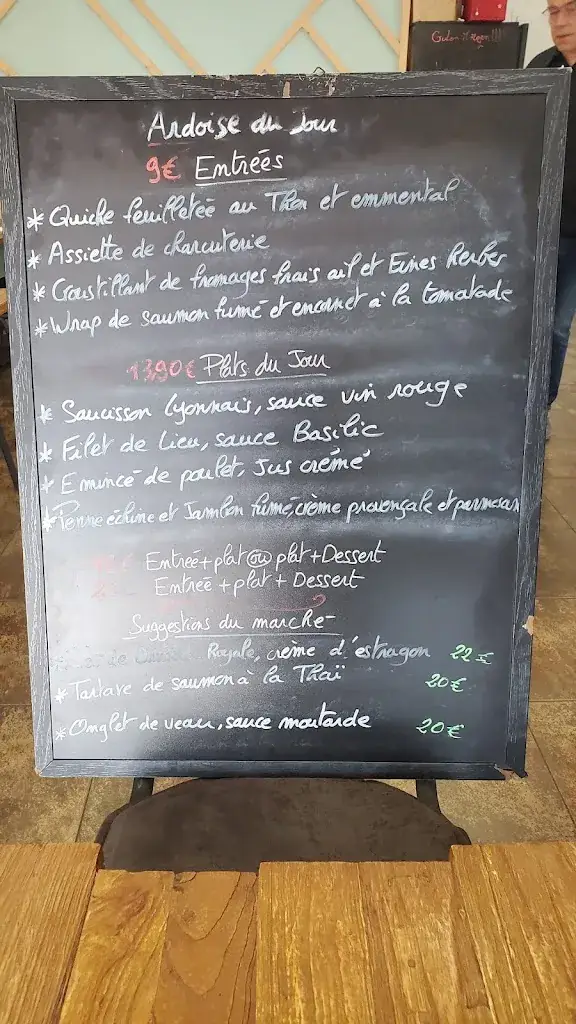 Ardoise du Jour
9€ Entrées
* Quiche feuilletée au Thon et emmental
* Assiette de charcuterie
* Croustillant de fromages frais ail et Fines herbes
* Wrap de saumon fumé et encornet à la tomatade
13,90€ Plats du Jour
* Saucisson Lyonnais, sauce vin rouge
* Filet de Lieu, sauce Basilic
* Emincé de poulet, Jus crémé
* Penne échine et Jambon fumé, crème provençale et parmesan
Entrée + plat ou plat + Dessert
Entrée + plat + Dessert
Suggestions du marché
de Royale, crème d'estragon 22€
* Tartare de saumon à la Thaï 20€
* Onglet de veau, sauce moutarde 20€